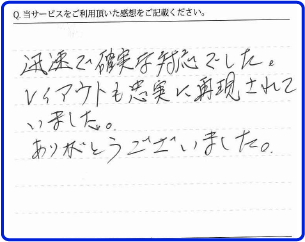 Q. 当サービスをご利用頂いた感想をご記載ください。
迅速で確実な対応でした。
レイアウトも忠実に再現されて
いました。
ありがとうございました。